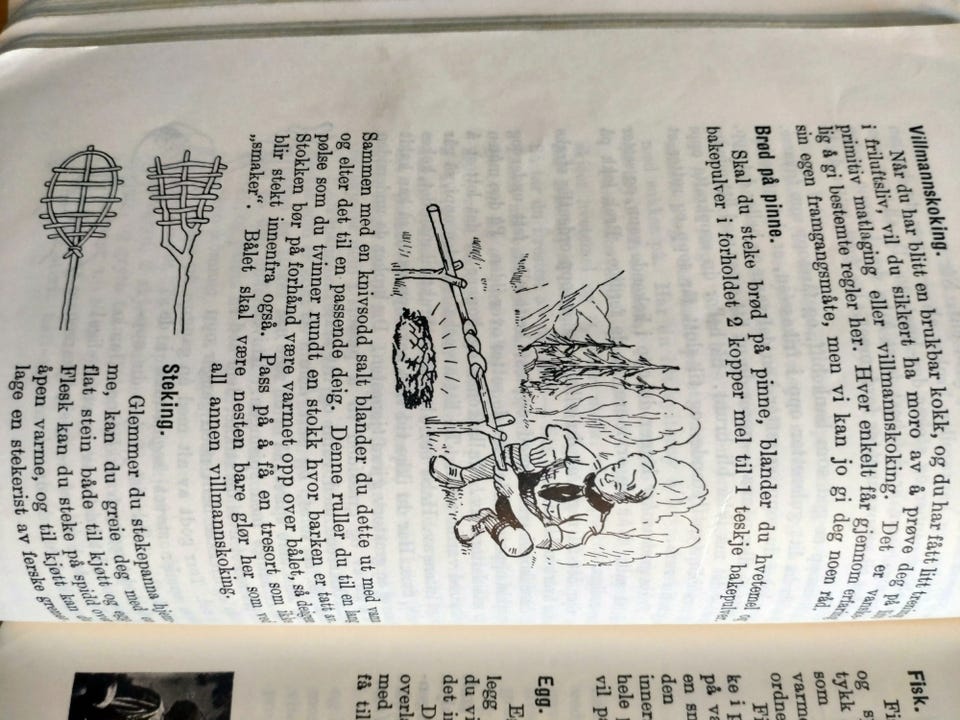 Villmannskoking.
Når du har blitt en brukbar kokk, og du har fått litt
i friluftsliv, vil du sikkert ha moro av å prøve deg på
primitiv matlaging eller villmannskoking. Det er
lig å gi bestemte regler her. Hver enkelt får gjennom
sin egen framgangsmåte, men vi kan jo gi deg noen råd.
Brød på pinne.
Skal du steke brød på pinne, blander du hvetemel
bakepulver i forholdet 2 kopper mel til 1 teskje bakepulver.
Sammen med en knivsodd salt blander du dette ut med
og elter det til en passende deig. Denne ruller du til en
pølse som du tvinner rundt en stokk hvor barken er tatt
Stokken bør på forhånd være varmet opp over bålet, så
blir stekt innenfra også. Pass på å få en tresort som
„smaker“. Bålet skal være nesten bare glør her som ved
all annen villmannskoking.
Steking.
Glemmer du stekepanna
me, kan du greie deg med
flat stein både til kjøtt og
Flesk kan du steke på spidd
åpen varme, og til kjøtt kan
lage en stekerist av ferske
Fisk.
og
tykk
som
varme
ordne
ke i
på
en
den
inner
hele
vil
Egg.
legg
du
det
overl
med
få til